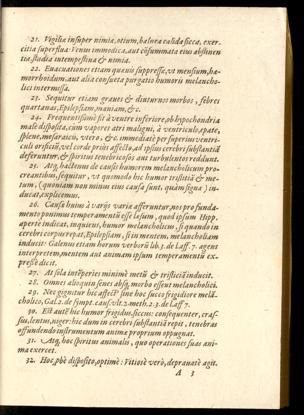 21. Vigiliæ insuper nimia, otium, balnea calida sicca, exer-
citia superflua: Venus immodica, aut cōsummata eius abstinen
tia, studia intempestiua & nimia.
22. Euacuationes etiam quæuis suppressæ, vt mensium, hæ-
morrhoidum, aut alia consueta purgatio humoris melancho-
lici intermissa.
23. Sequitur etiam graues & diuturnos morbos, febres
quartanas, Epilepsiam, maniam, &c.
24. Frequentissimè fit à ventre inferiore, ob hypochondria
male disposita, cum vapores atri maligni, à ventriculo, hepate,
splene, mesaræo, vtero, &c. immediatè per superius ventri-
culi orificiū, vel corde priùs affecto, ad ipsius cerebri substantiā
deferuntur, & spiritus tenebricosos aut turbulentos reddunt.
25. Atq, hactenus de causis humorem melancholicum pro-
creantibus, sequitur, vt quomodo hic humor tristitiā & me-
tum, (quoniam non minus eius causa sunt, quàm signa) in-
ducat, explicemus.
26. Causæ huius à varijs variæ afferuntur, nos pro funda-
mento ponimus temperamentū esse læsum, quod ipsum Hipp.
apertè indicat, inquiens, humor melancholicus, si quando in
cerebri corpus repat, Epilepsiam, si in mentem, melancholiam
inducit: Galenus etiam horum verborū lib. 3. de Loc. aff. 7. agens
interpretem, mentem aut animam ipsum temperamentū ex-
pressè dicit.
27. At sola intēperies minimè metū & tristiciā inducit.
28. Omnes alioquin senes absq, morbo essent melancholici.
29. Nec gignitur hic affectꝰ sine hoc succo frigidiore melā-
cholico, Gal. 2. de sympt. caus. vlt. 2. meth. 2. 3. de Loc. aff. 7.
30. Est autē hic humor frigidus, siccus: consequenter, cras-
sus, lentus, niger: hic dum in cerebri substantiā repit, tenebras
offundendo instrumentum animæ proprium oppugnat.
31. Atq, hoc spiritus animalis, quo operationes suas ani-
ma exercet.
32. Hoc, phè disposito, optimè: Vitiato verò, deprauatè agit.
A 3